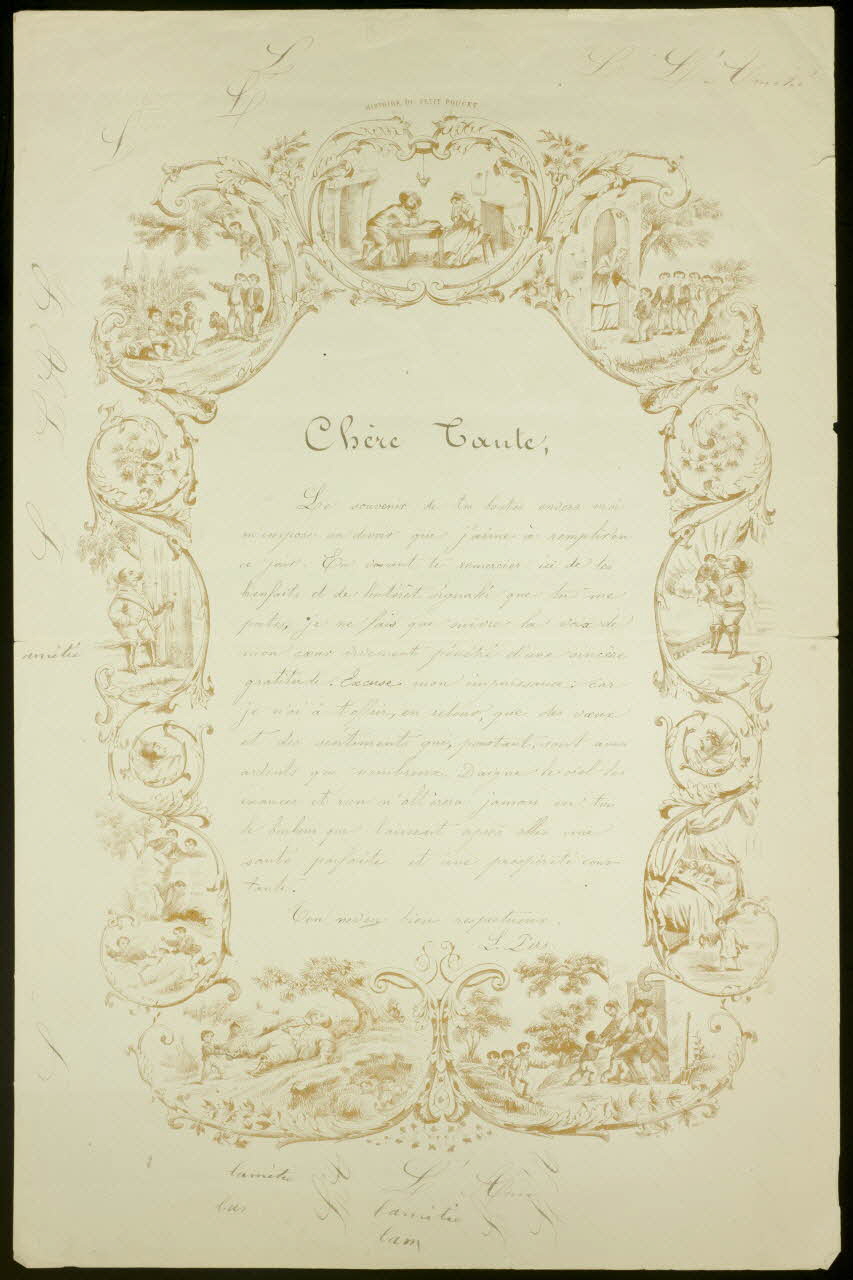 L
L
L
L L'Amitié
HISTOIRE DU PETIT POUCET
Chère Tante,
Le souvenir de tes bontés envers moi
m'impose un devoir que j'aime à remplir en
ce jour. En venant te remercier ici de tes
bienfaits et de l'intérêt signalé que tu me
portes, je ne fais que suivre la voix de
mon cœur vivement pénétré d'une sincère
gratitude. Excuse mon impuissance: car
je n'ai à t'offrir, en retour, que des vœux
et des sentiments qui, pourtant, sont aussi
ardents que nombreux. Daigne le ciel les
exaucer et rien n'altérera jamais en toi
le bonheur que laissent après elles une
santé parfaite et une prospérité cons-
tante.
Ton neveu bien respectueux.
L.
amitié
lamitié
L' Ami
lamitié
lam